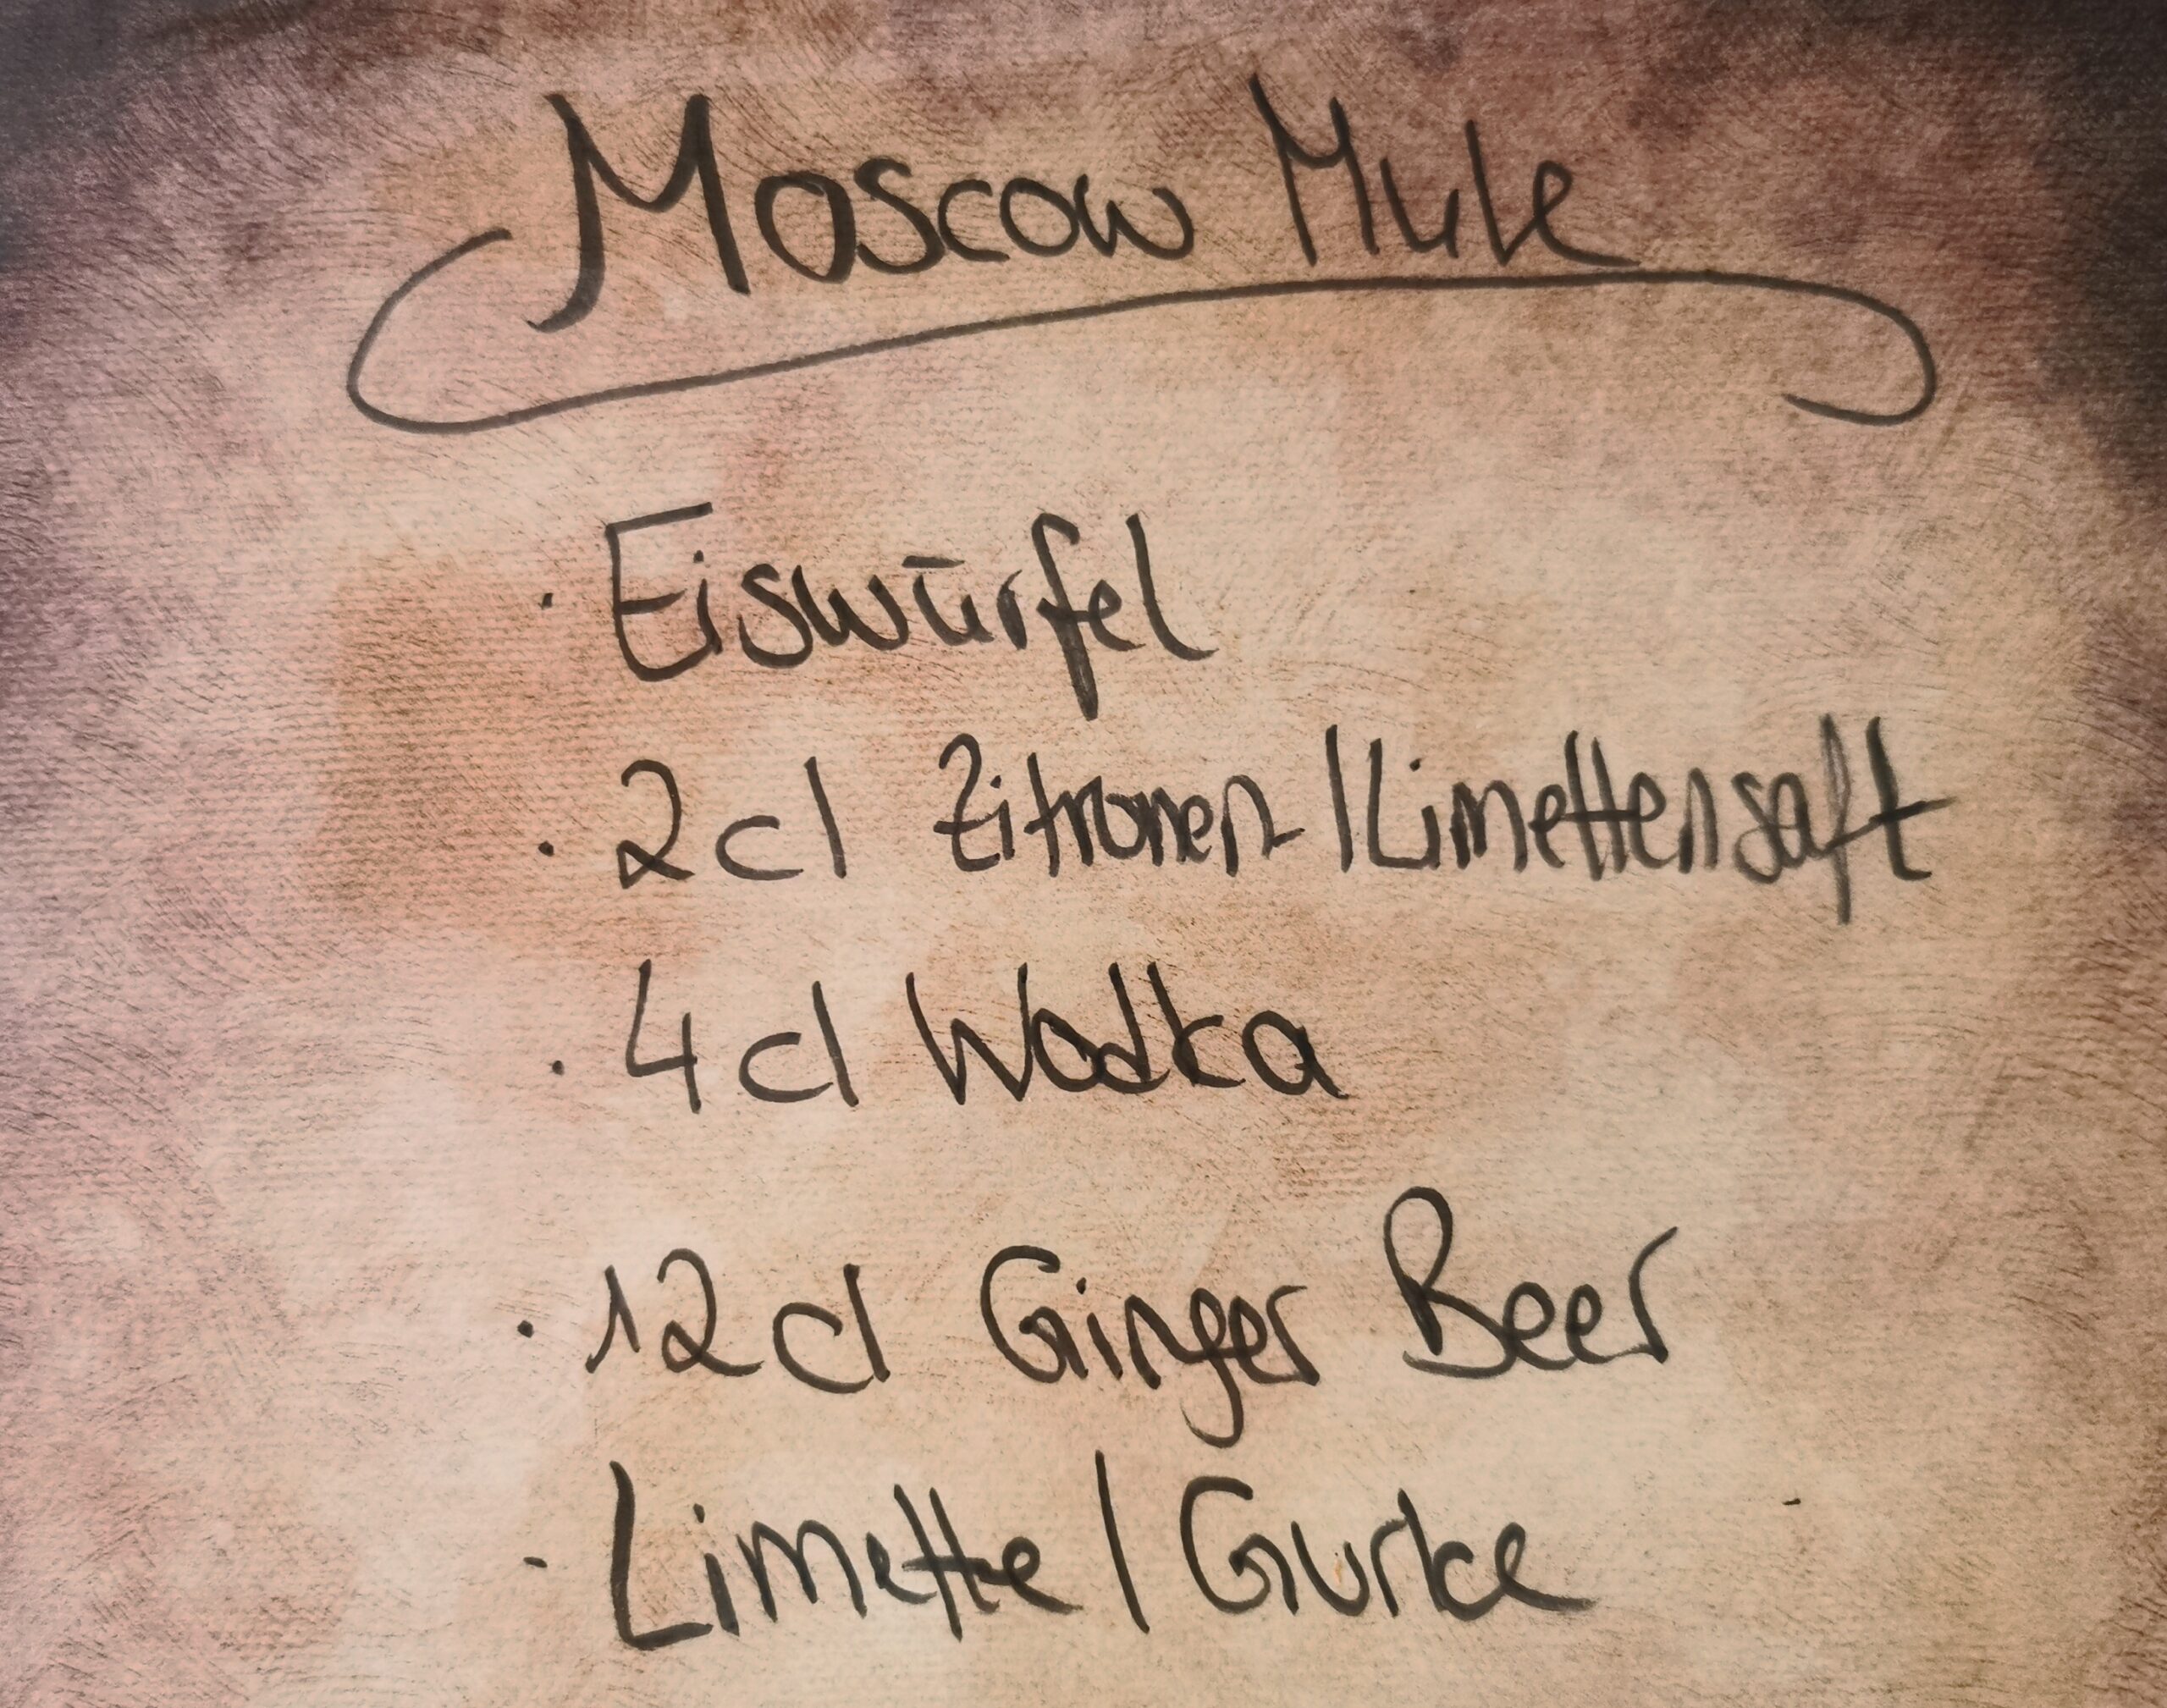 Moscow Mule
· Eiswürfel
· 2cl Zitronen-/Limettensaft
· 4cl Wodka
· 12cl Ginger Beer
- Limette/Gurke